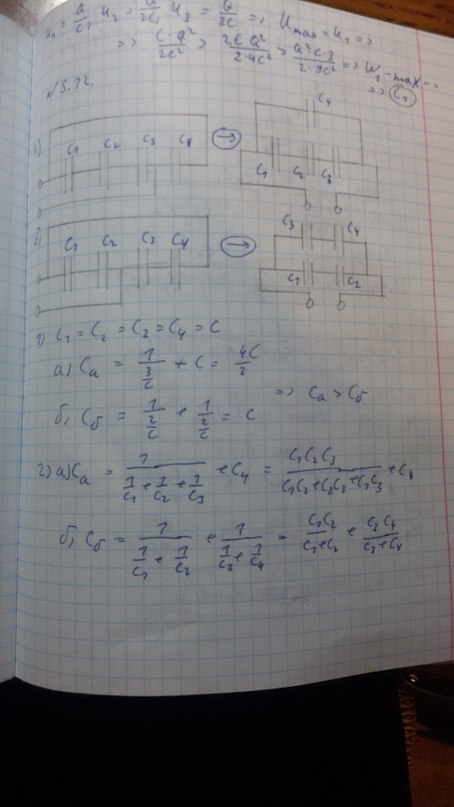 u₁ = Q/C, u₂ = Q/2C, u₃ = Q/3C ⇒ Umax = u₁ ⇒
⇒ C·Q²/2C² > 2C·Q²/2·4C² > Q²C·3/2·9C² ⇒ W₁ - max ⇒
⇒ C₁
№5.12.
а) C₁ C₂ C₃ C₄ → C₄ C₁ C₂ C₃
б) C₁ C₂ C₃ C₄ → C₃ C₄ C₁ C₂
1) C₁ = C₂ = C₃ = C₄ = C
а) Cа = 1/(3/C) + C = 4C/3
⇒ Cа > Cб
б) Cб = 1/(2/C) + 1/(2/C) = C
2) а) Cа = 1/(1/C₁ + 1/C₂ + 1/C₃) + C₄ = C₁C₂C₃/(C₁C₂ + C₂C₃ + C₁C₃) + C₄
б) Cб = 1/(1/C₁ + 1/C₂) + 1/(1/C₃ + 1/C₄) = C₁C₂/(C₁ + C₂) + C₃C₄/(C₃ + C₄)